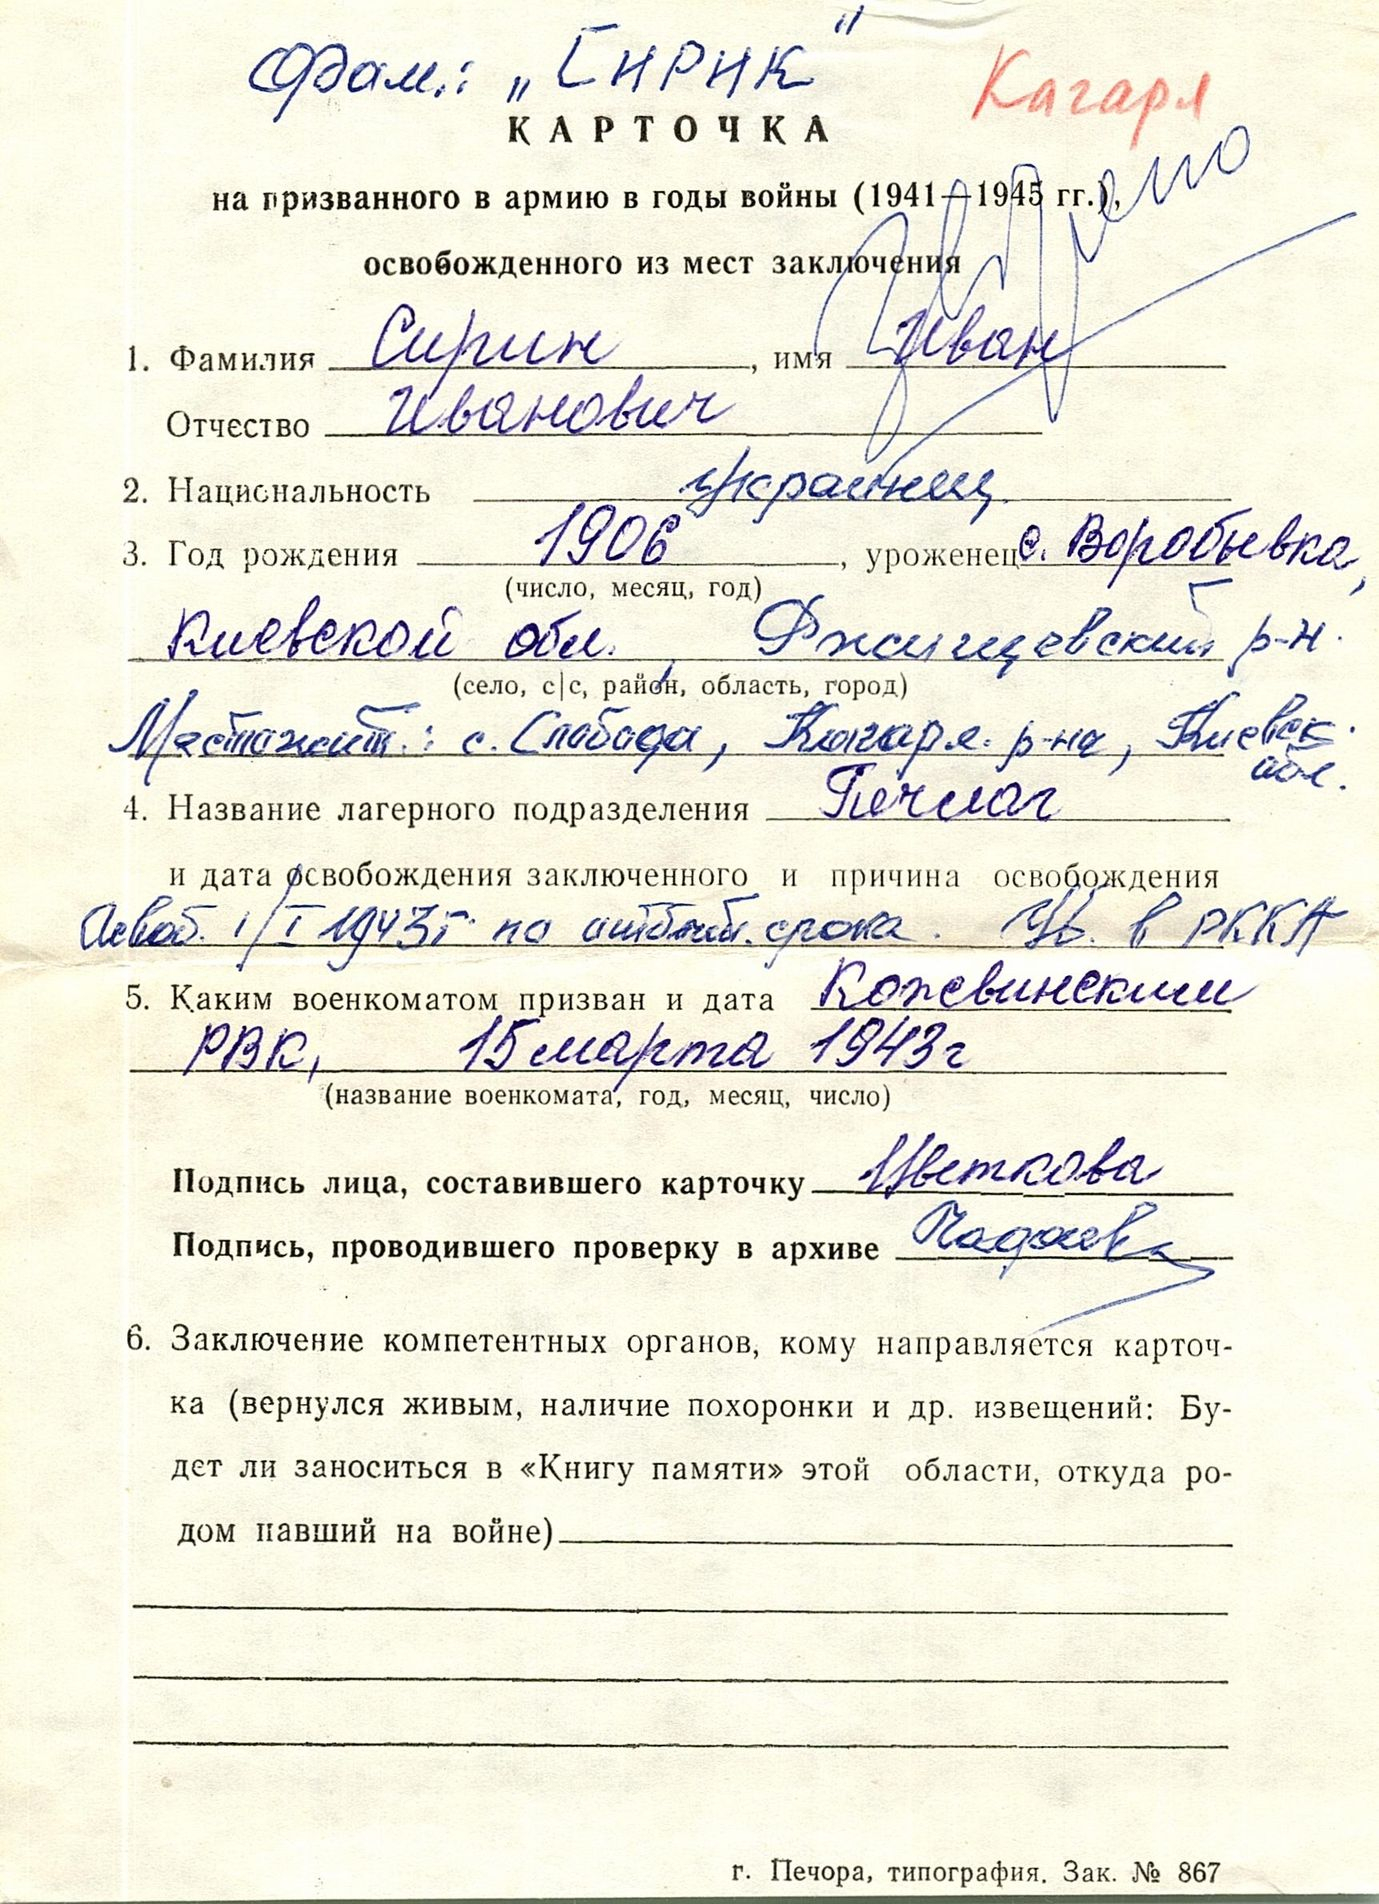 Фам.: „Сирик"
Кагарл
КАРТОЧКА
на призванного в армию в годы войны (1941—1945 гг.),
освобожденного из мест заключения
1. Фамилия Сирин, имя Иван
Отчество Иванович
2. Национальность украинец.
3. Год рождения 1906, уроженец с. Воробьевка,
(число, месяц, год)
Киевской обл., Ржищевский р-н.
(село, с|с, район, область, город)
Местожит.: с. Слобода, Кагарл. р-на, Киевск.
обл.
4. Название лагерного подразделения Печлаг
и дата освобождения заключенного и причина освобождения
Освоб. 1/I 1943г. по отбытии срока. Уб. в РККА
5. Каким военкоматом призван и дата Кожвинским
РВК, 15 марта 1943г
(название военкомата, год, месяц, число)
Подпись лица, составившего карточку Цветкова
Подпись, проводившего проверку в архиве
6. Заключение компетентных органов, кому направляется карточ-
ка (вернулся живым, наличие похоронки и др. извещений: Бу-
дет ли заноситься в «Книгу памяти» этой области, откуда ро-
дом павший на войне)
г. Печора, типография. Зак. № 867